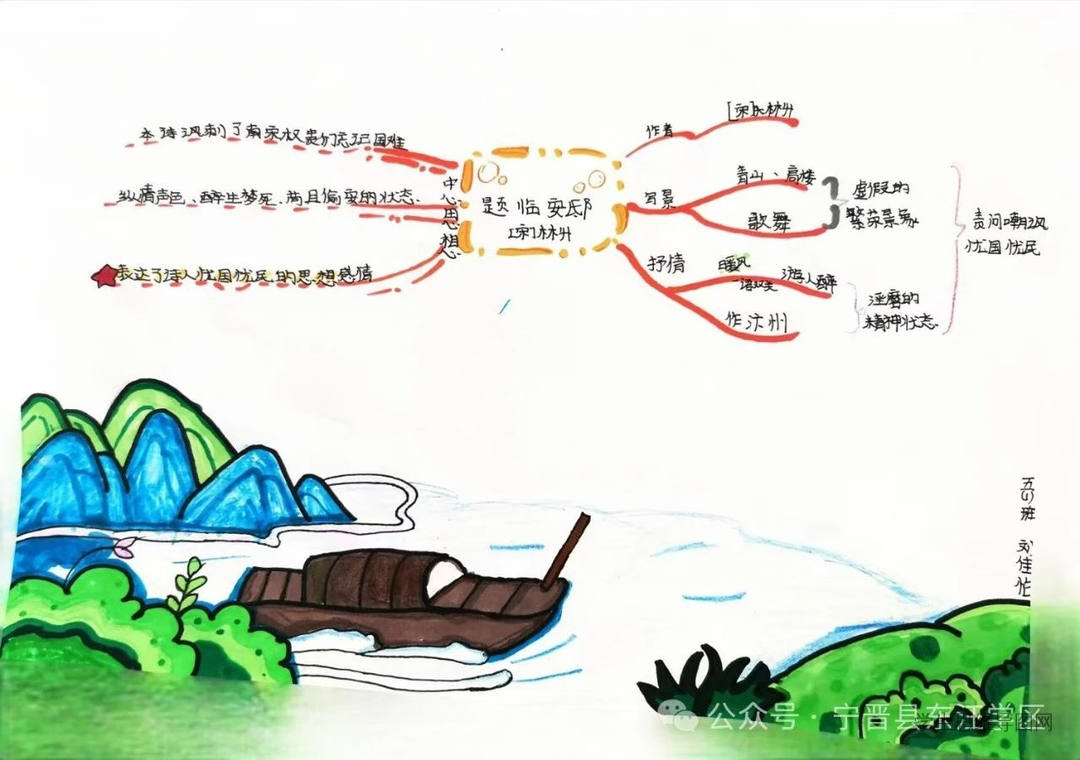 题临安邸
[宋]林升
中心思想
本诗讽刺了南宋权贵们忘记国难
纵情声色、醉生梦死、苟且偷安的状态.
表达了诗人忧国忧民的思想感情
作者
[宋]林升
写景
青山、高楼
歌舞
虚假的
繁荣景象
抒情
暖风
游人醉
作汴州
淫靡的
精神状态
责问嘲讽
忧国忧民
公众号 · 宁晋县东汪学区